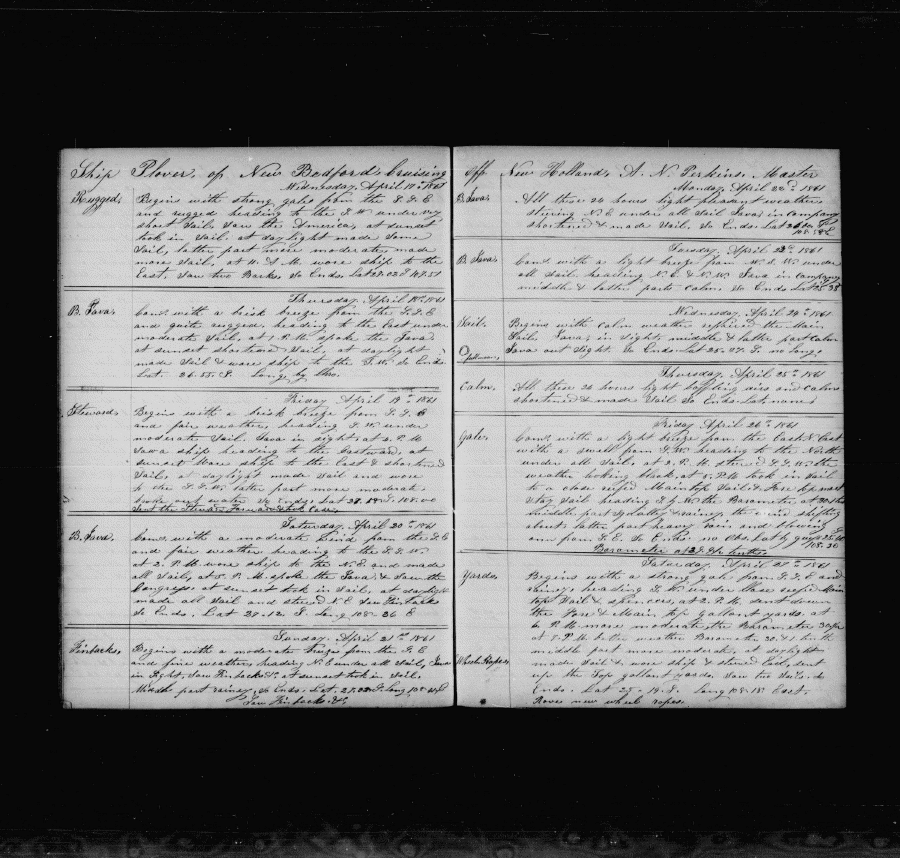 Ship Plover, of New Bedford, Cruising
Wednesday, April 17th 1861
Rugged.
Begins with strong gales from the S. S. E
and rugged heading to the S. W under very
short Sail, Saw the America, at sunset
took in Sail. at daylight made Some
Sail, latter part more moderate, made
more Sail, at 11. A. M. wore ship to the
East. Saw two Barks, So Ends. Lat
Thursday, April 18th 1861
B. Java.
Com's with a brisk breeze from the S. S. E
and quite rugged, heading to the East under
moderate Sail, at 1. P. M. spoke the Java.
at sunset shortened Sail, at daylight
made Sail & wore ship to the S. W. So Ends
Lat. 26.55. S. Long by Chro.
Friday April 19th 1861
Steward.
Begins with a brisk breeze from S. S. E
and fair weather, heading S. W. under
moderate Sail. Java in sight, at 2. P. M
Saw a ship heading to the Eastward, at
sunset Wore ship to the East & shortened
Sail, at daylight made Sail and wore
to the S. S. W. latter part more moderate.
broke out water So Ends, Lat
Sent the Steward Forward & took Case.
Saturday, April 20th 1861
B. Java.
Com's with a moderate Wind from the S. E
and fair weather, heading to the S. S. W.
at 2. P. M. wore ship to the N. E. and made
all Sail, at 5. P. M. spoke the Java, & Saw the
Congress, at sunset took in Sail, at daylight
made all Sail and steered N. E Saw Finbacks
So Ends. Lat Long 108. 26 E
Sunday, April 21st 1861
Finbacks.
Begins with a moderate breeze from the S. E
and fine weather, heading N. E under all Sail, Java
in Sight, Saw Finbacks &c, at sunset took in Sail.
Middle part rainy, So Ends. Lat. Long
Saw Finbacks &c.
Off New Holland, A. N. Perkins, Master
Monday, April 22nd 1861
B. Java.
All these 24 hours light pleasant weather
steering N. E under all Sail Java in company
shortened & made Sail, So Ends. Lat
Tuesday, April 23d 1861
B. Java.
Com's with a light breeze from W. S. W. under
all Sail heading N. E. & N. W. Java in company
middle & latter parts calm, So Ends Lat
Wednesday, April 24th 1861
Sail.
Begins with Calm weather repaired the Main
Sail, Java in Sight, middle & latter part Calm
Java out Sight. So Ends Lat 25. 07. S. no Long.
Thursday, April 25th 1861
Calm.
All these 24 hours light baffling airs and Calms
shortened & made Sail So Ends. Lat none
Friday, April 26th 1861
Gale.
Com's with a light breeze from the East N. East
with a swell from S. W. heading to the North
under all Sail, at 2. P. M. steered S. S. W. the
weather looking black, at 5. P. M took in Sail
to a close reefed Maintop Sail & Fore top mast
Stay Sail heading S by W. the Barometer at
middle part Squally & rainy, the wind shifting
about, latter part heavy rain and blowing
a from S. E. So Ends no Obs. Lat by
Barometer at
Saturday, April 27th 1861
Yards.
Begins with a strong gale from S. S. E and
rainy, heading S. W. under close reefed Main
top Sail & spencers, at 2. P. M. Sent down
the Fore & Main top gallant yards, at
6. P. M. more moderate, the Barometer
at 8. P. M. the weather Barometer
middle part more moderate, at daylight
made Sail & wore ship & steered East, sent
Wheel Ropes.
up the Top gallant yards. Saw two Sails. So
Ends. Lat 25. 19. S. Long 108. 18. East.
Rove new wheel ropes.